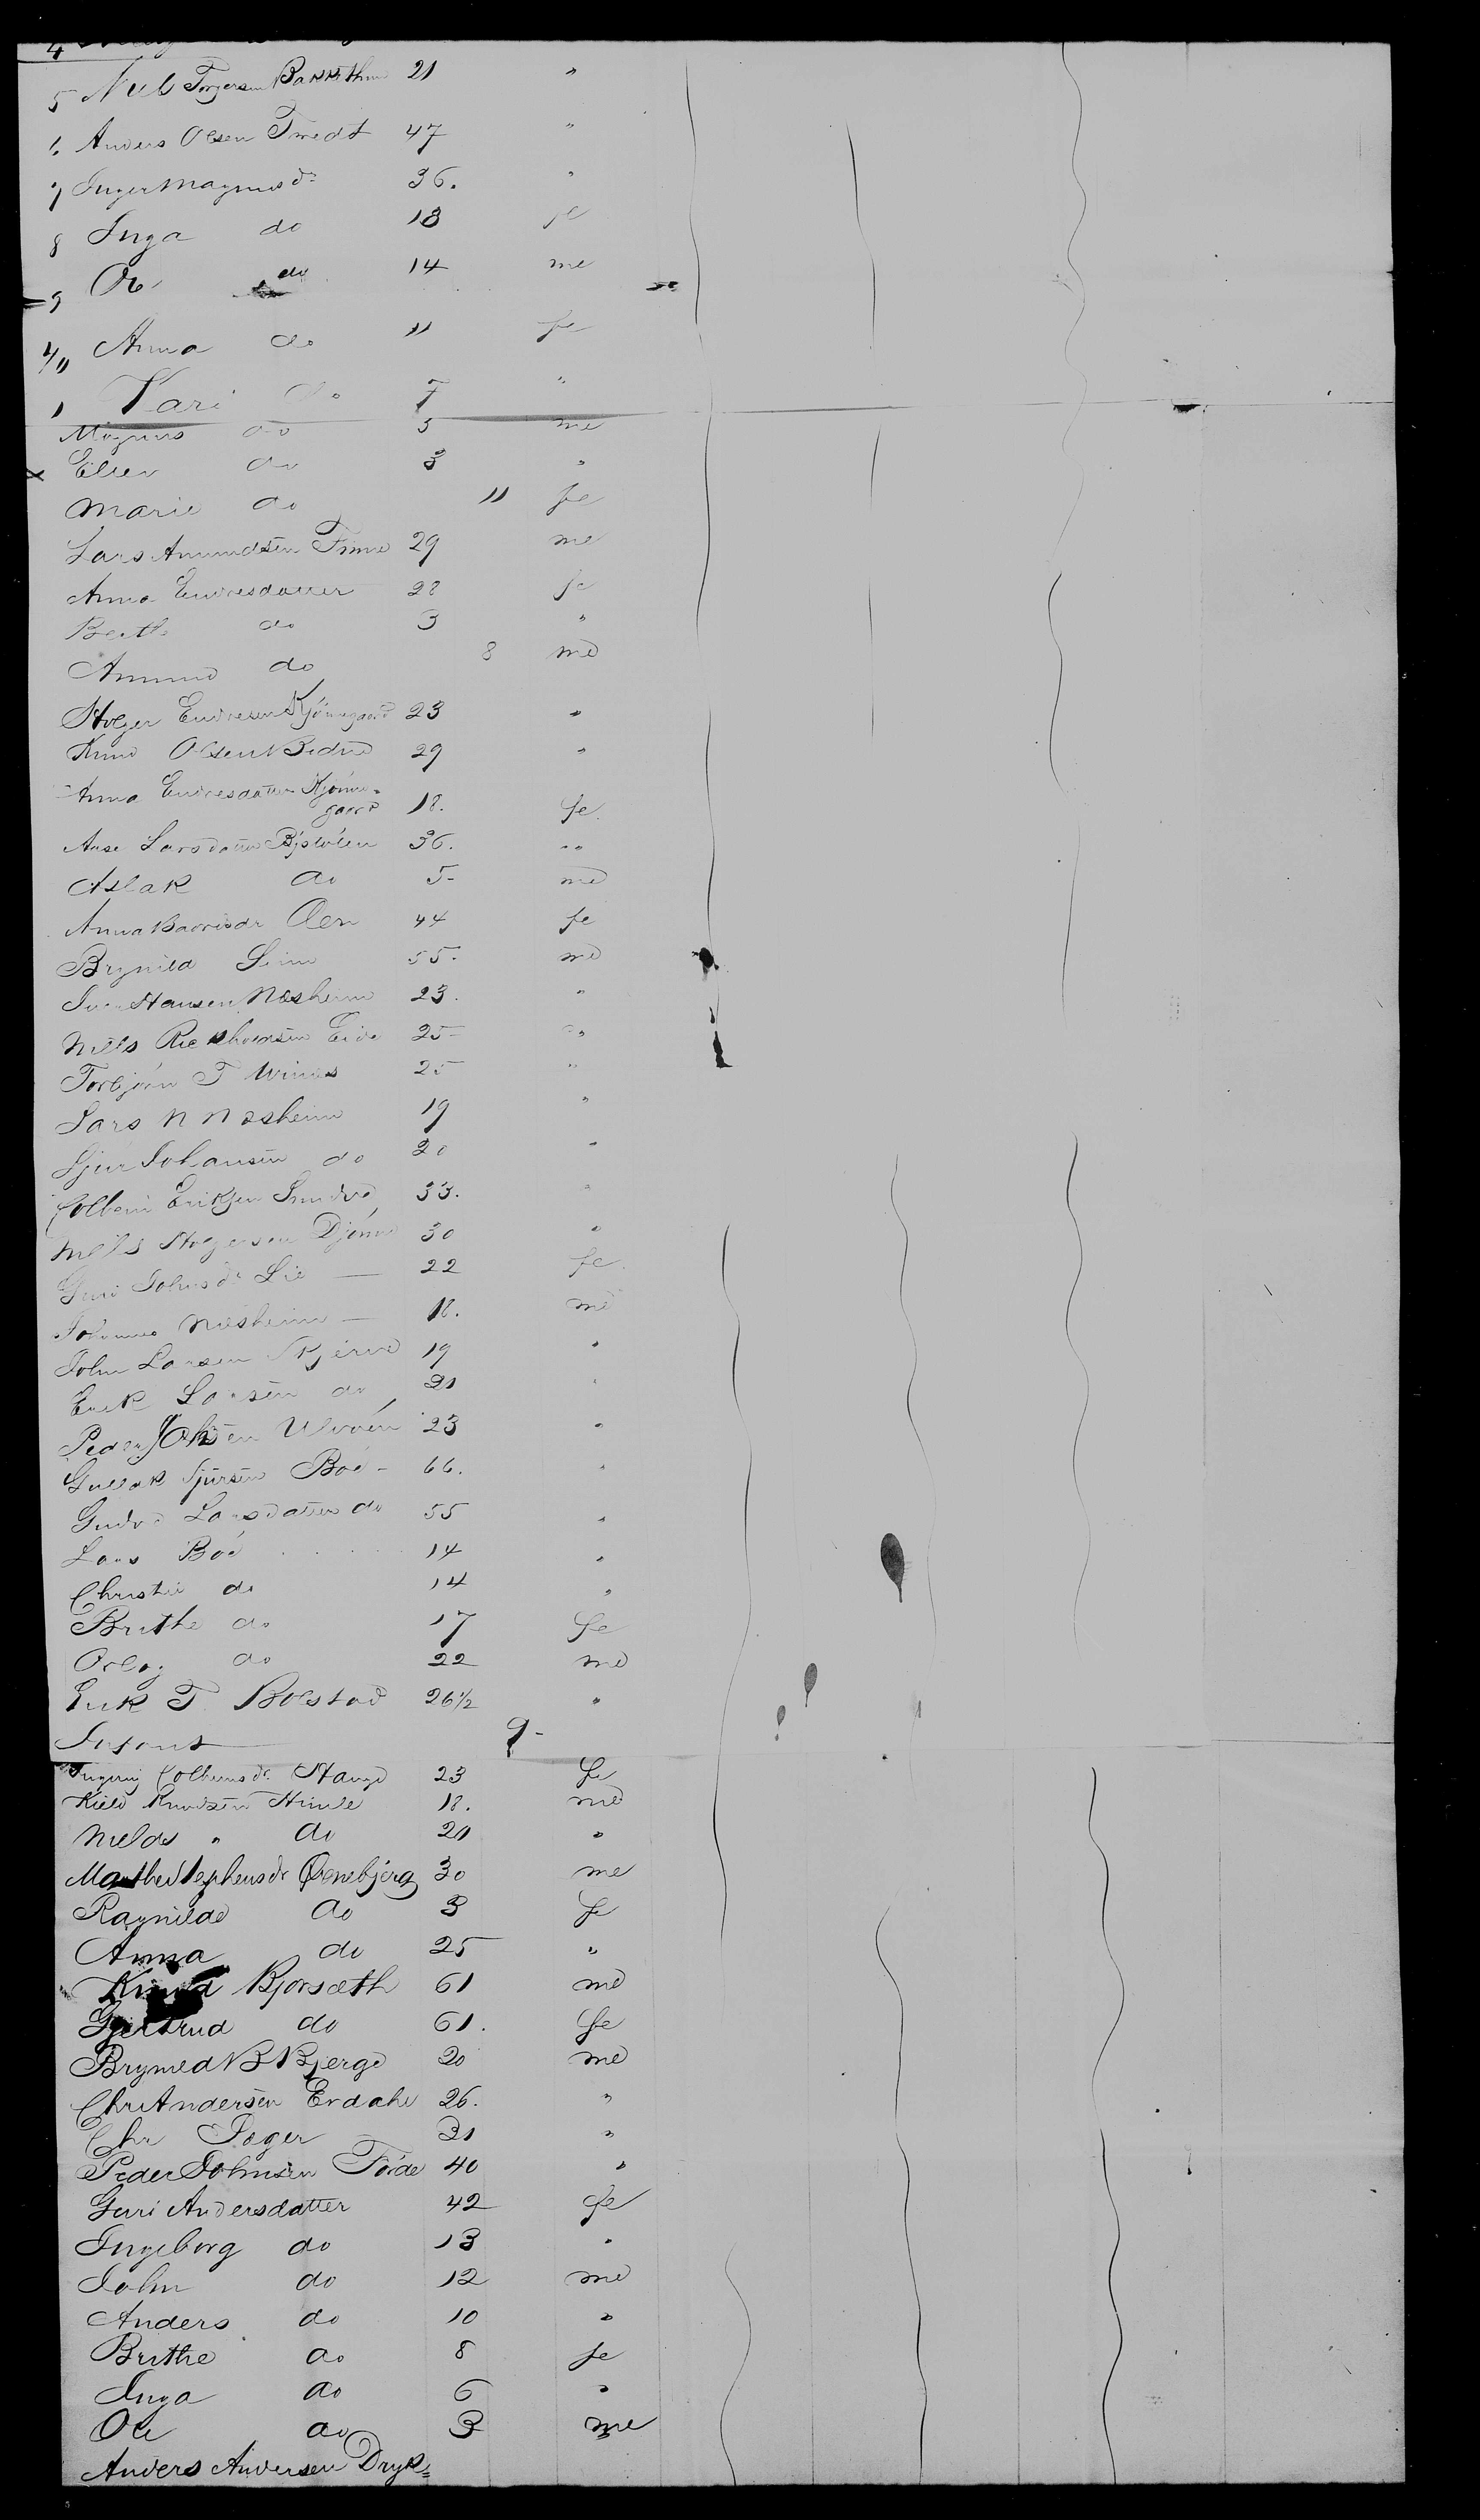 4
5 Nils Torgersen 21 "
6 Anders Olsen Tvedt 47 "
7 Inger Magnusdr 36. "
8 Inga do 18 fe
9 Ole do 14 me
40 Anna do 11 fe
1 Kari do 7 "
Magnus do 5 me
Ellen do 3 "
Marie do 11 fe
Lars Amundsen Finne 29 me
Anna Endresdatter 28 fe
Berthe do 3 "
Amund do 8 me
Holger Endresen Kjönnegaard 23 "
Knud Olsen 29 "
Anna Endresdatter Kjönne-
gaard 18. fe
Aase Larsdatter 36. "
Aslak do 5 me
Anna Oen 44 fe
Brynild Seim 55. me
Iver Hansen Næsheim 23. "
Nils Eide 25 "
Torbjörn T Winæs 25 "
Lars N Næsheim 19 "
Sjur Johansen do 20 "
Colbein Eriksen 33. "
Nils Holgersen Djönne 30 "
Guri Johnsdr Lie 22 fe
Johannes Næsheim 18. me
John Larsen Skjerve 19 "
Erik Larsen do 21 "
Peder Ulvöen 23 "
Gullak Sjursen Böe 66. "
Larsdatter do 55 "
Lars Böe 14 "
Christie do 14 "
Brithe do 17 fe
do 22 me
Erik T. Bolstad 26 1/2 "
Infant 9
Colbeinsdr Hauge 23 fe
Kield Knudsen Himle 18. me
Nields " do 21 "
Marthe Stephensdr Örnebjerg 30 me
Ragnilde do 3 fe
Anna do 25 "
Knud Bjorsæth 61 me
Gjertrud do 61. fe
Bryneld B Bjerge 20 me
Chr Andersen Erdahl 26. "
Chr Jæger 31 "
Peder Johnsen Förde 40 "
Guri Andersdatter 42 fe
Ingeborg do 13 "
John do 12 me
Anders do 10 "
Brithe do 8 fe
Inga do 6 "
Ole do 3 me
Anders Andersen Dryk=